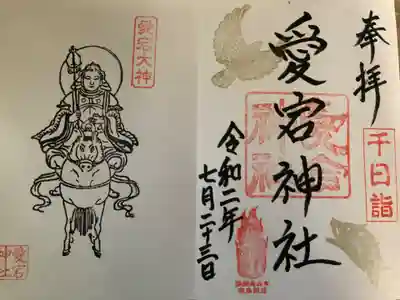 奉拝
千日詣
愛宕神社
愛宕神社
令和二年
七月二十三日
愛宕大神
愛宕神社